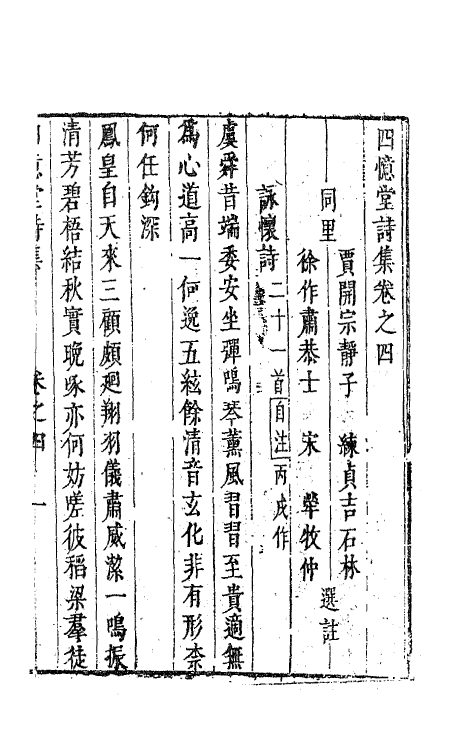 四憶堂詩集卷之四
賈開宗靜子　練貞吉石林
同里　選註
徐作肅恭士　宋　犖牧仲
詠懷詩二十一首自注丙戌作
虞舜昔端委安坐彈鳴琴薰風習習至貴適無
為心道高一何逸五絃餘清音玄化非有形奈
何任鉤深
鳳皇自天來三顧頗廻翔羽儀肅威潔一鳴振
清芳碧梧結秋實晚啄亦何妨嗟彼稻梁羣徒
四憶堂詩集　卷之四　一